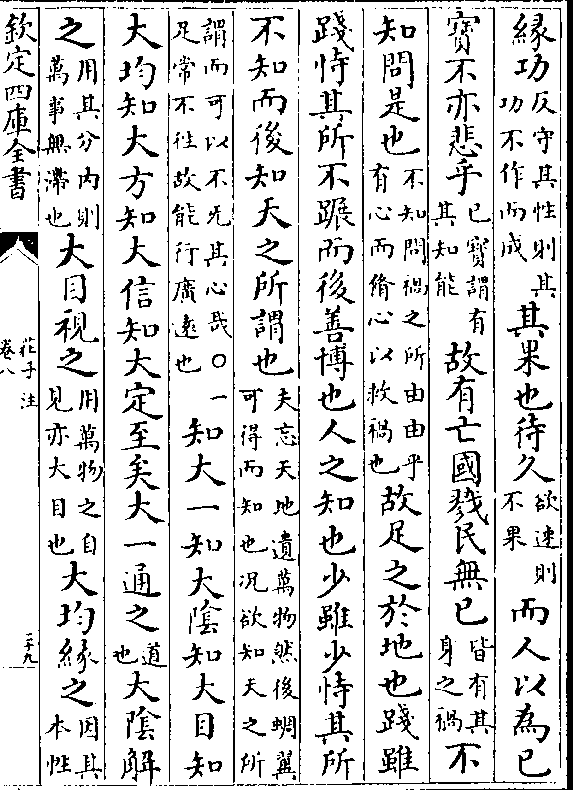 緣功反守其性則其功不作而成其果也待久欲速則不果而人以為已
寳不亦悲乎已寳謂有其知能故有亡國戮民無已皆有其身之禍不
知問是也不知問禍之所由由乎有心而脩心以救禍也故足之於地也踐雖
踐恃其所不蹍而後善博也人之知也少雖少恃其所
不知而後知天之所謂也夫忘天地遺萬物然後蜩翼可得而知也况欲知天之所
謂而可以不无其心哉足常不往故能行廣遠也○一知大一知大陰知大目知
大均知大方知大信知大定至矣大一通之道也大陰解
之用其分内則萬事無滯也大目視之用萬物之自見亦大目也大均緣之因其本性
欽定四庫全書
莊子注
卷八
二十九